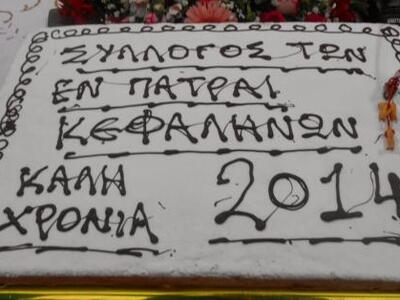 ΣΥΛΛΟΓΟΣ ΤΩΝ
ΕΝ ΠΑΤΡΑΙ
ΚΕΦΑΛΗΝΩΝ
ΚΑΛΗ
ΧΡΟΝΙΑ 2014